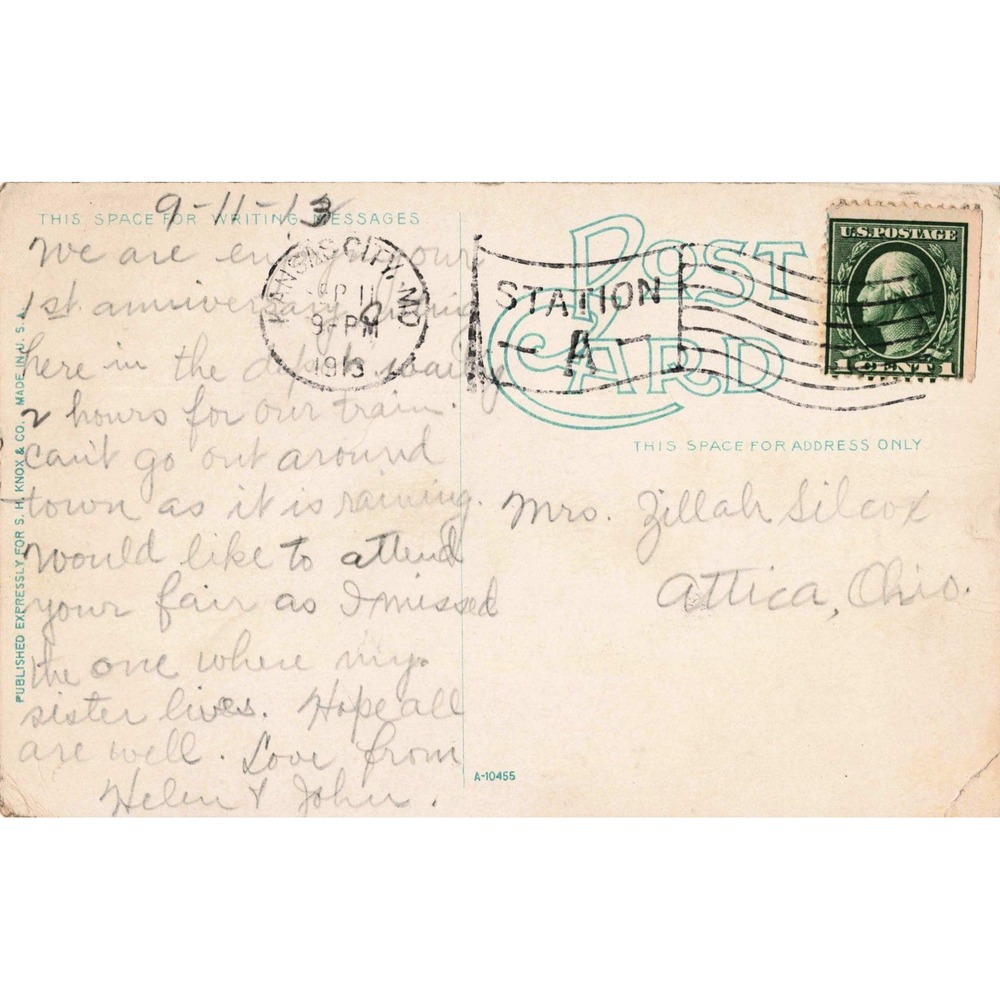 9-11-13
THIS SPACE FOR WRITING MESSAGES
We are enjoying our
1st anniversary
here in the depot waiting
2 hours for our train.
Can't go out around
town as it is raining.
Would like to attend
your fair as I missed
the one where my
sister lives. Hope all
are well. Love from
Helen & John.
PUBLISHED EXPRESSLY FOR S. H. KNOX & CO., MADE IN U. S. A.
KANSAS CITY, MO
SEP 11
9-PM
1913
STATION
A
POST
CARD
U.S. POSTAGE
1 CENT 1
THIS SPACE FOR ADDRESS ONLY
Mrs. Zillah Silcox
Attica, Ohio.
A-10455